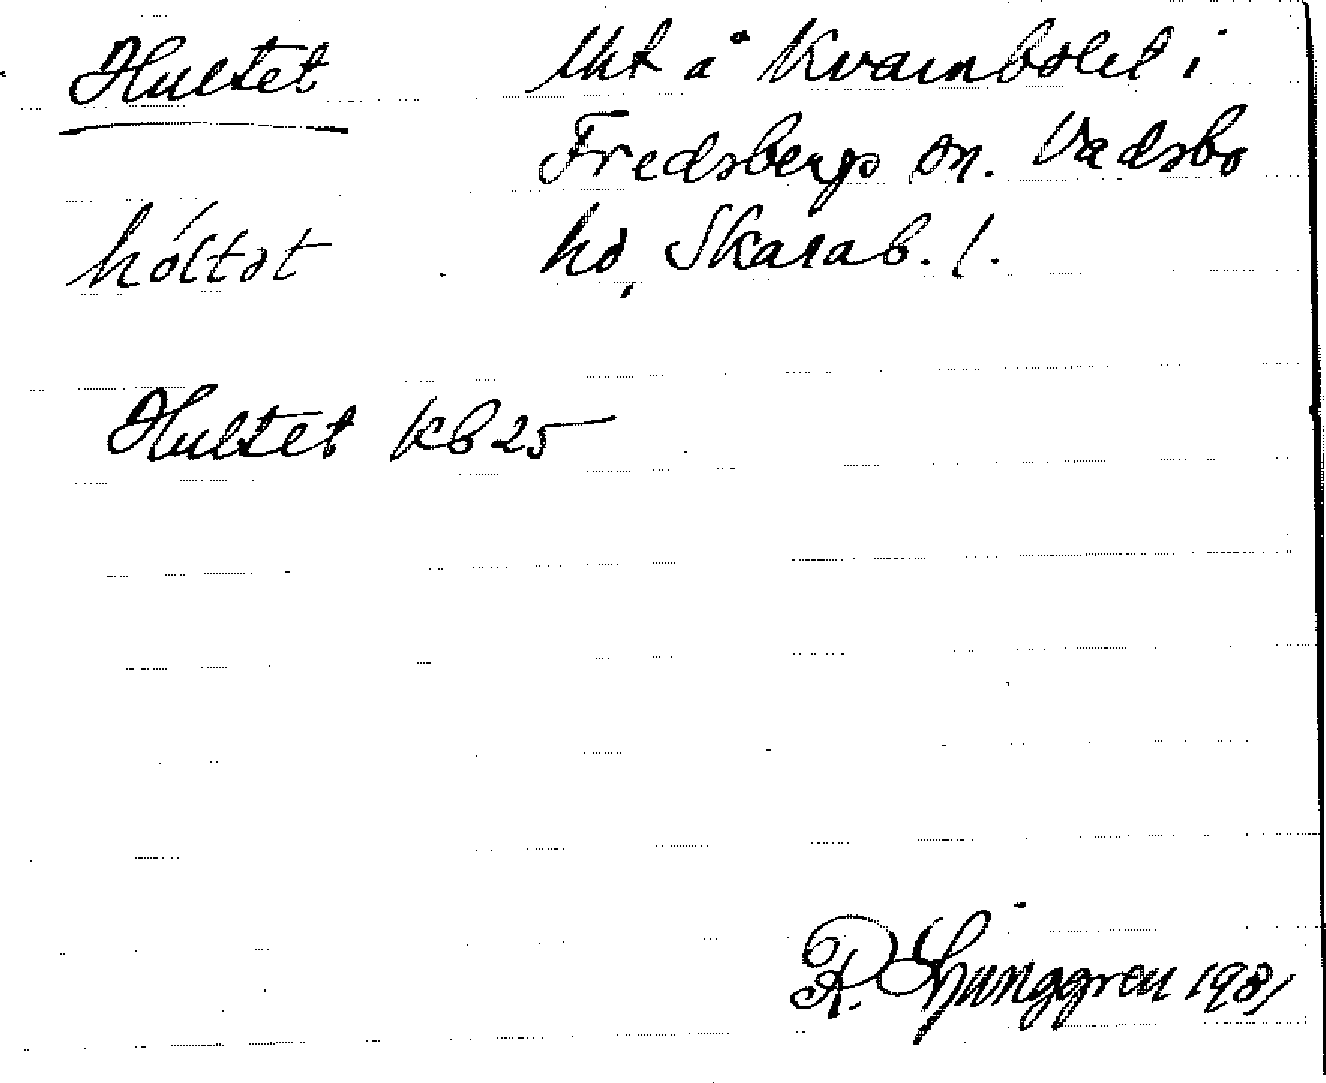 Hultet lht å Kvarnbölet i
Fredsbergs sn. Vadsbo
hóltət hd, Skarab. l.
Hultet KB 25
R. Ljunggren 1931